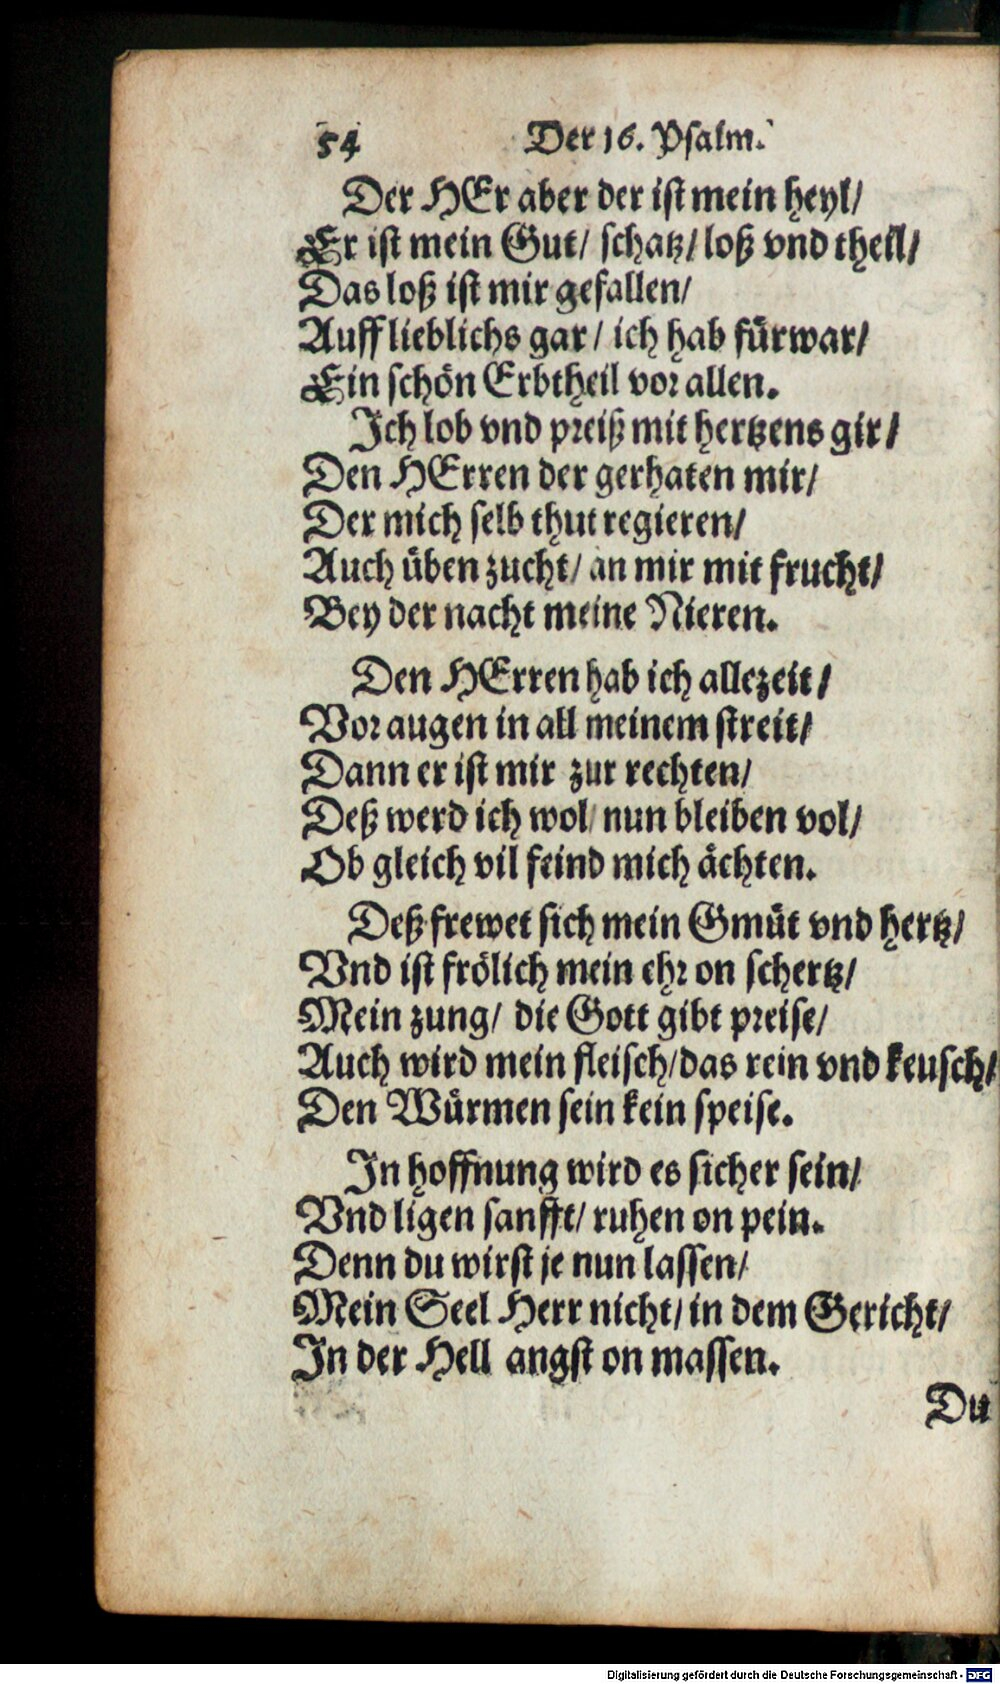 54 Der 16. Psalm.
Der HEr aber der ist mein heyl/
Er ist mein Gut/ schatz/ loß vnd theil/
Das loß ist mir gefallen/
Auff lieblichs gar/ ich hab fürwar/
Ein schön Erbtheil vor allen.
Ich lob vnd preiß mit hertzens gir/
Den HErren der gerhaten mir/
Der mich selb thut regieren/
Auch üben zucht/ an mir mit frucht/
Bey der nacht meine Nieren.
Den HErren hab ich allezeit/
Vor augen in all meinem streit/
Dann er ist mir zur rechten/
Deß werd ich wol/ nun bleiben vol/
Ob gleich vil feind mich ächten.
Deß frewet sich mein Gmüt vnd hertz/
Vnd ist frölich mein ehr on schertz/
Mein zung/ die Gott gibt preise/
Auch wird mein fleisch/ das rein vnd keusch/
Den Würmen sein kein speise.
In hoffnung wird es sicher sein/
Vnd ligen sanfft/ ruhen on pein.
Denn du wirst je nun lassen/
Mein Seel Herr nicht/ in dem Gericht/
In der Hell angst on massen.
Du
Digitalisierung gefördert durch die Deutsche Forschungsgemeinschaft - DFG